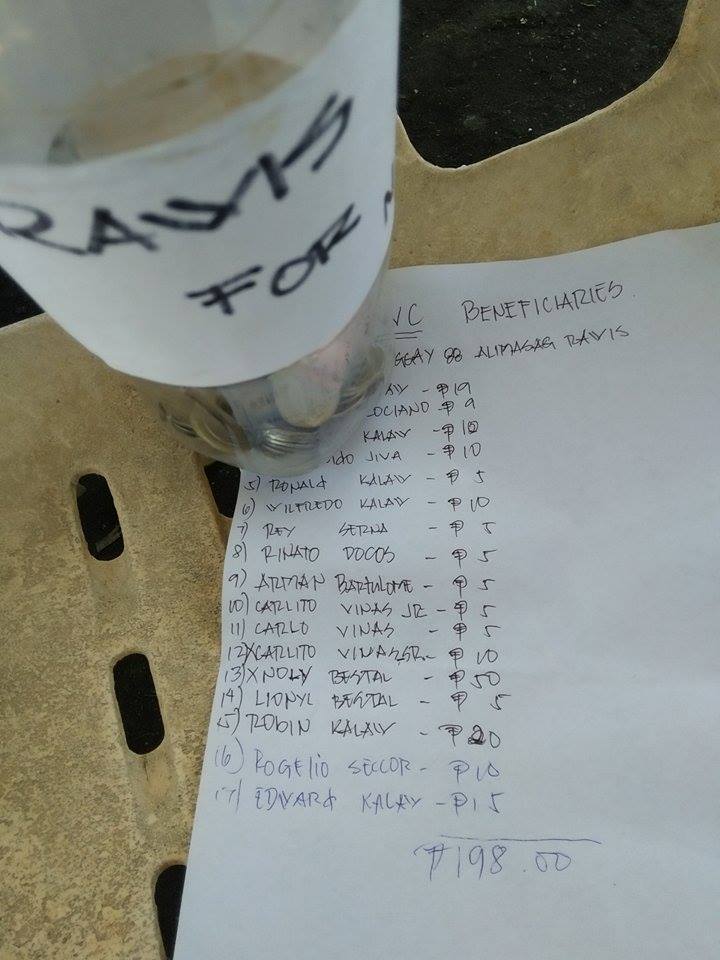 RAWIS
FOR
BENEFICIARIES
88 ALIMASAG RAWIS
- ₱19
OCIANO - ₱ 9
KALAW - ₱10
JIVA - ₱10
5) RONALD KALAW - ₱ 5
6) WILFREDO KALAW - ₱10
7) REY SERNA - ₱ 5
8) RINATO DOCOS - ₱ 5
9) ARMAN BARTULOME - ₱ 5
10) CARLITO VINAS JR - ₱ 5
11) CARLO VINAS - ₱ 5
12) X CARLITO VINAS SR. - ₱10
13) X NOLY BESTAL - ₱50
14) LIONYL BESTAL - ₱ 5
15) ROBIN KALAW - ₱20
16) ROGELIO SECCOR - ₱10
17) EDWARD KALAY - ₱15
₱198.00